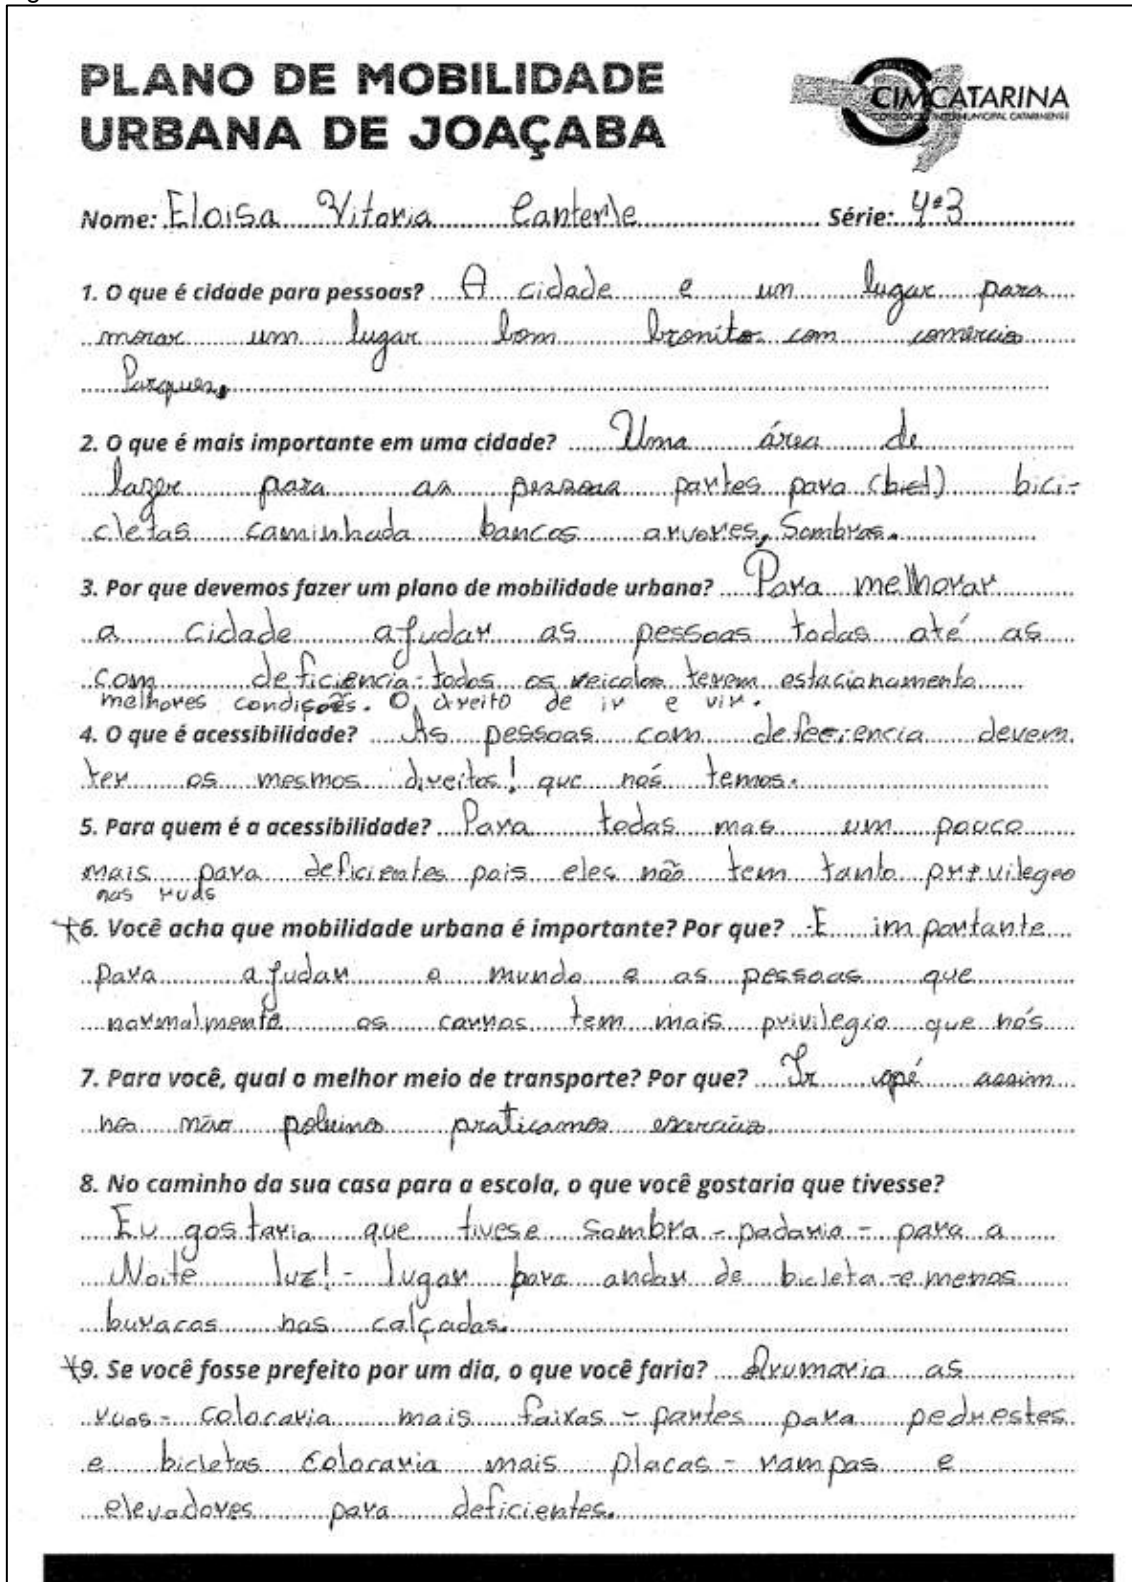 PLANO DE MOBILIDADE
URBANA DE JOAÇABA
CIMCATARINA
CONSÓRCIO INTERMUNICIPAL CATARINENSE
Nome: Eloisa Vitoria Canterle Série: 4º3
1. O que é cidade para pessoas? A cidade e um lugar para
morar um lugar bom bronito com comercio
Parques.
2. O que é mais importante em uma cidade? Uma área de
lazer para as pessoas partes para (bicl) bici-
cletas caminhada bancos arvores, Sombras.
3. Por que devemos fazer um plano de mobilidade urbana? Para melhorar
a cidade ajudar as pessoas todas até as
com deficiencia-todos os veicolos terem estacionamento
melhores condições. O direito de ir e vir.
4. O que é acessibilidade? As pessoas com defeciencia devem
ter os mesmos direitos! que nós temos.
5. Para quem é a acessibilidade? Para todas mas um pouco
mais para deficientes pois eles não tem tanto privilegeo
nas ruas
6. Você acha que mobilidade urbana é importante? Por que? É importante
para ajudar o mundo e as pessoas que
normalmente os carros tem mais privilegio que nós
7. Para você, qual o melhor meio de transporte? Por que? Ir apé assim
nós não poluimos praticamos exercicio.
8. No caminho da sua casa para a escola, o que você gostaria que tivesse?
Eu gostaria que tivese sombra - padaria - para a
Noite luz! - lugar para andar de bicleta - e menos
buracos nas calçadas.
9. Se você fosse prefeito por um dia, o que você faria? Arumaria as
ruas - colocaria mais faixas - partes para pedrestes
e bicletas colocaria mais placas - rampas e
elevadores para deficientes.